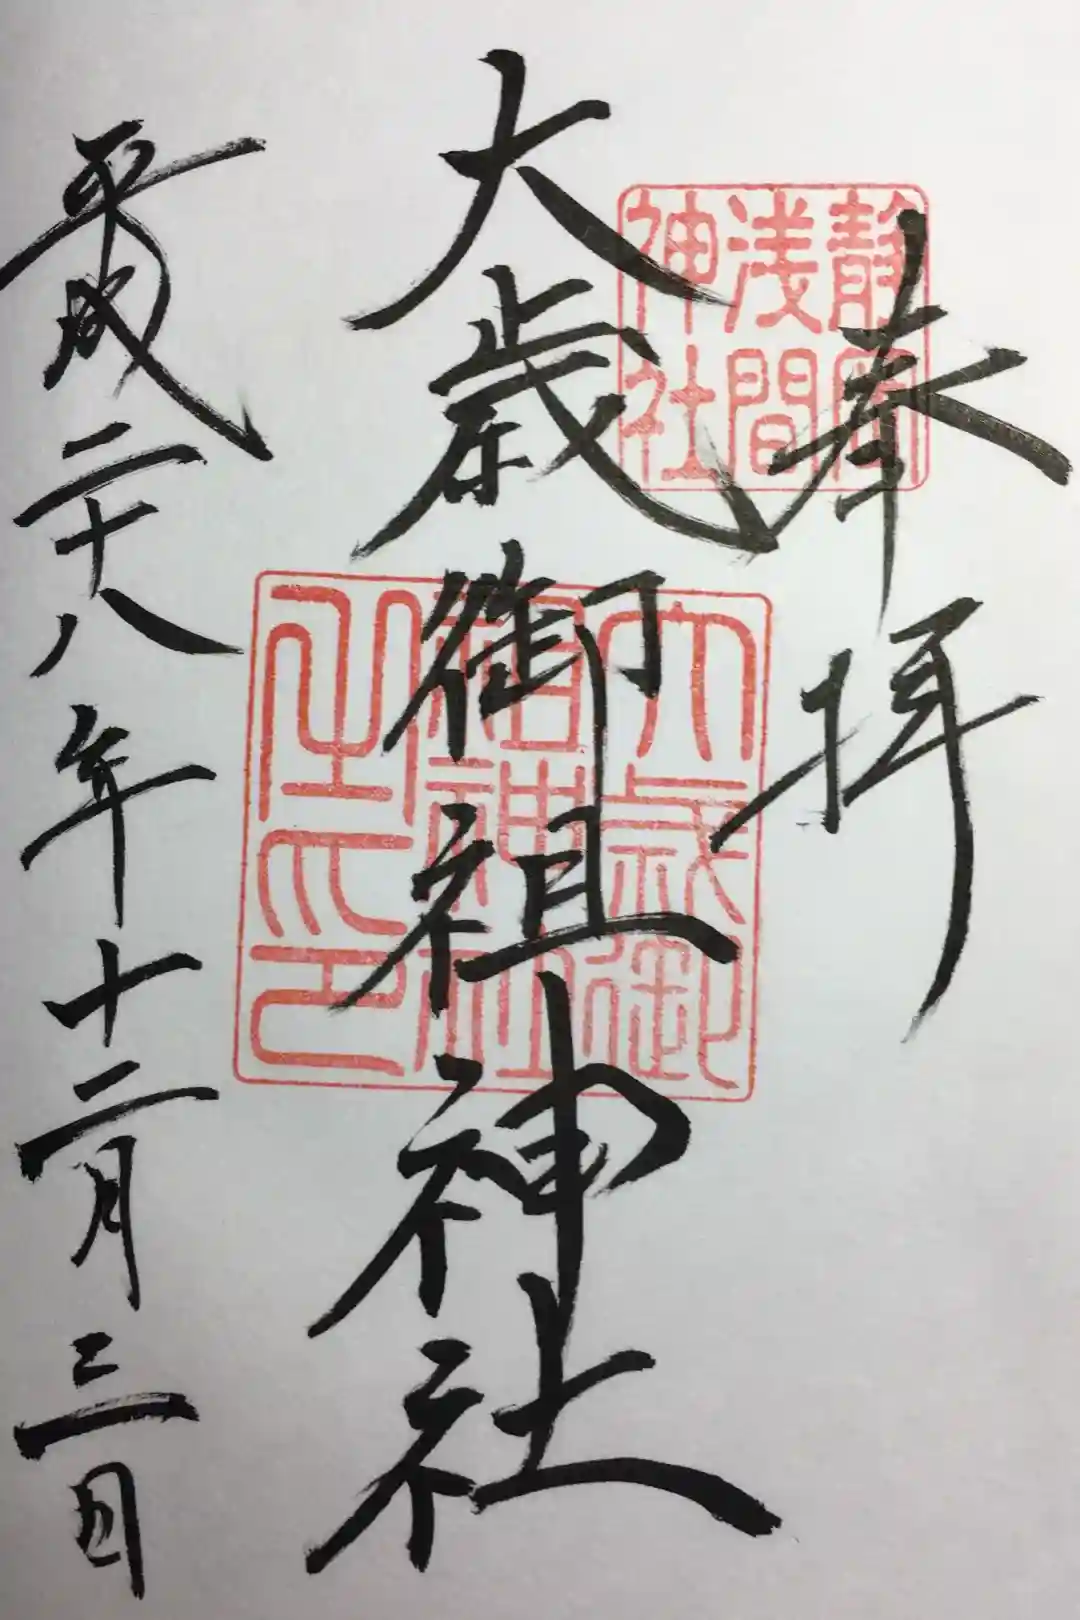 奉拝
静岡
浅間
神社
大歳御祖神社
大歳御
祖神社
之印
平成二十八年十二月三日